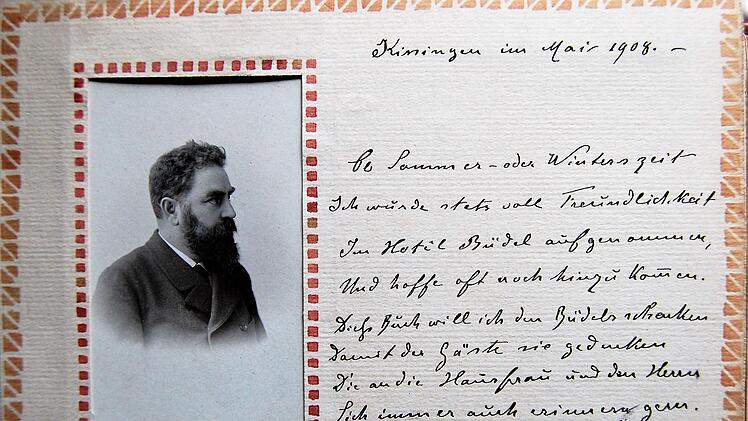 Kissingen im Mai 1908. –
Ob Sommer- oder Winterszeit
Ich wurde stets voll Freundlichkeit
Im Hotel Büdel aufgenommen,
Und hoffe oft noch hinzu kommen.
Dies Buch will ich den Büdels schenken
Damit der Gäste sie gedenken
Die an die Hausfrau und den Herrn
Sich immer auch erinnern gern.